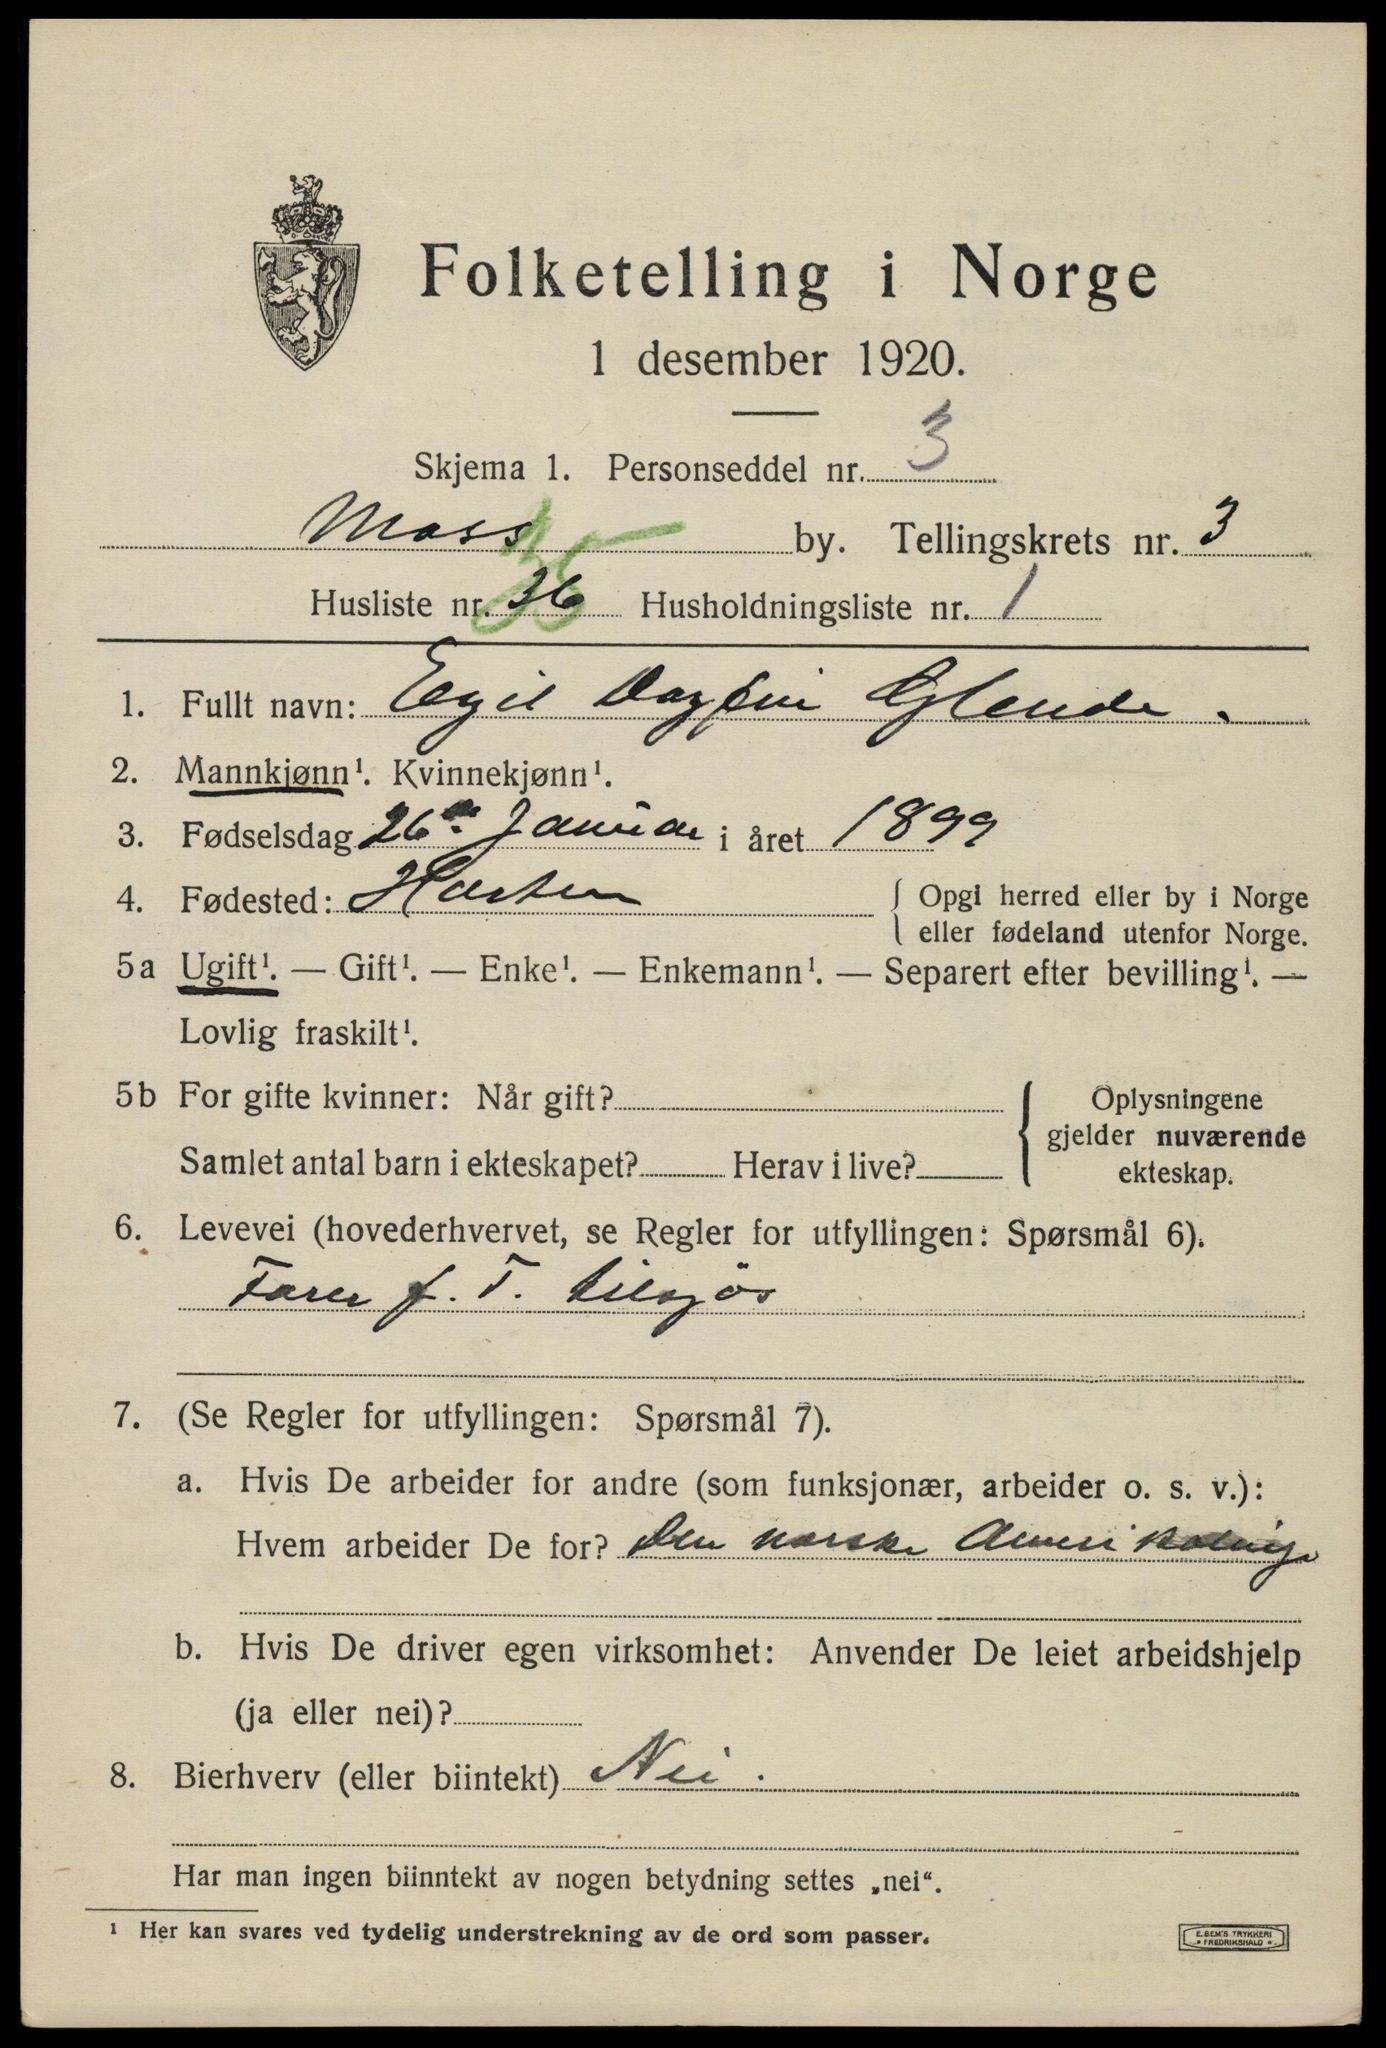 Folketelling i Norge
1 desember 1920.
Skjema 1. Personseddel nr. 3
Moss by. Tellingskrets nr. 3
Husliste nr. 36 35 Husholdningsliste nr. 1
1. Fullt navn: Egil Dagfin Glende.
2. Mannkjønn¹. Kvinnekjønn¹.
3. Fødselsdag 26de Januar i året 1899
4. Fødested: { Opgi herred eller by i Norge
eller fødeland utenfor Norge.
5a Ugift¹. — Gift¹. — Enke¹. — Enkemann¹. — Separert efter bevilling¹. —
Lovlig fraskilt¹.
5b For gifte kvinner: Når gift? { Oplysningene
gjelder nuværende
Samlet antal barn i ekteskapet? Herav i live?
ekteskap.
6. Levevei (hovederhvervet, se Regler for utfyllingen: Spørsmål 6).
f. T. tilsjøs
7. (Se Regler for utfyllingen: Spørsmål 7).
a. Hvis De arbeider for andre (som funksjonær, arbeider o. s. v.):
Hvem arbeider De for? Den norske Amerikalinje
b. Hvis De driver egen virksomhet: Anvender De leiet arbeidshjelp
(ja eller nei)?
8. Bierhverv (eller biintekt) Nei.
Har man ingen biinntekt av nogen betydning settes „nei“.
¹ Her kan svares ved tydelig understrekning av de ord som passer.
E. BEM'S TRYKKERI
FREDRIKSHALD